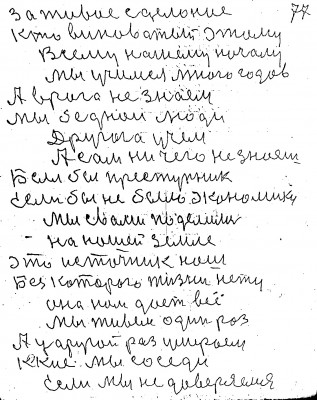 за живое сделоние 77
Кто виноватый этому
Всему нашему началу
мы учимся много годов
А врага не знаем
мы бедной люди
Друга учем
А сам ни чего не знаеш
Был бы преступник
если бы не было экономики
мы свами поделили
на нашей земле
это источник наш
Без которого жизни нету
она нам дает всё
мы живем один раз
А у другой раз умираем
мы соседи
если мы не доверяемся